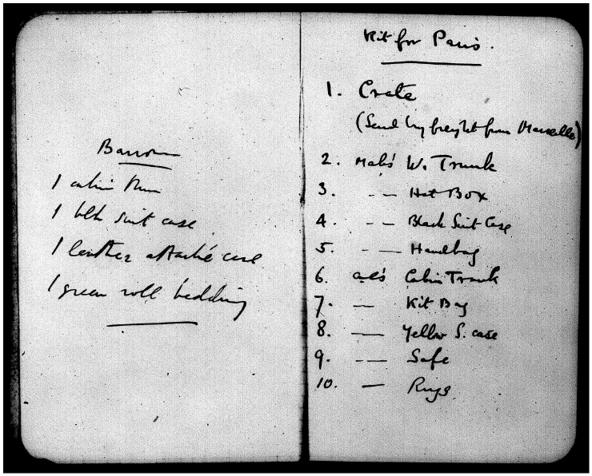 1 cabin
1 blk suit case
1 leather attaché case
1 green roll bedding
Kit for Paris.
1. Crate
(Send by freight from Marseilles)
2. Mab's W. Trunk
3. — — Hat Box
4. — — Black Suit Case
5. — — Handbag
6. Cabin Trunk
7. — Kit Bag
8. — Yellow S. case
9. — — Safe
10. — Rugs.